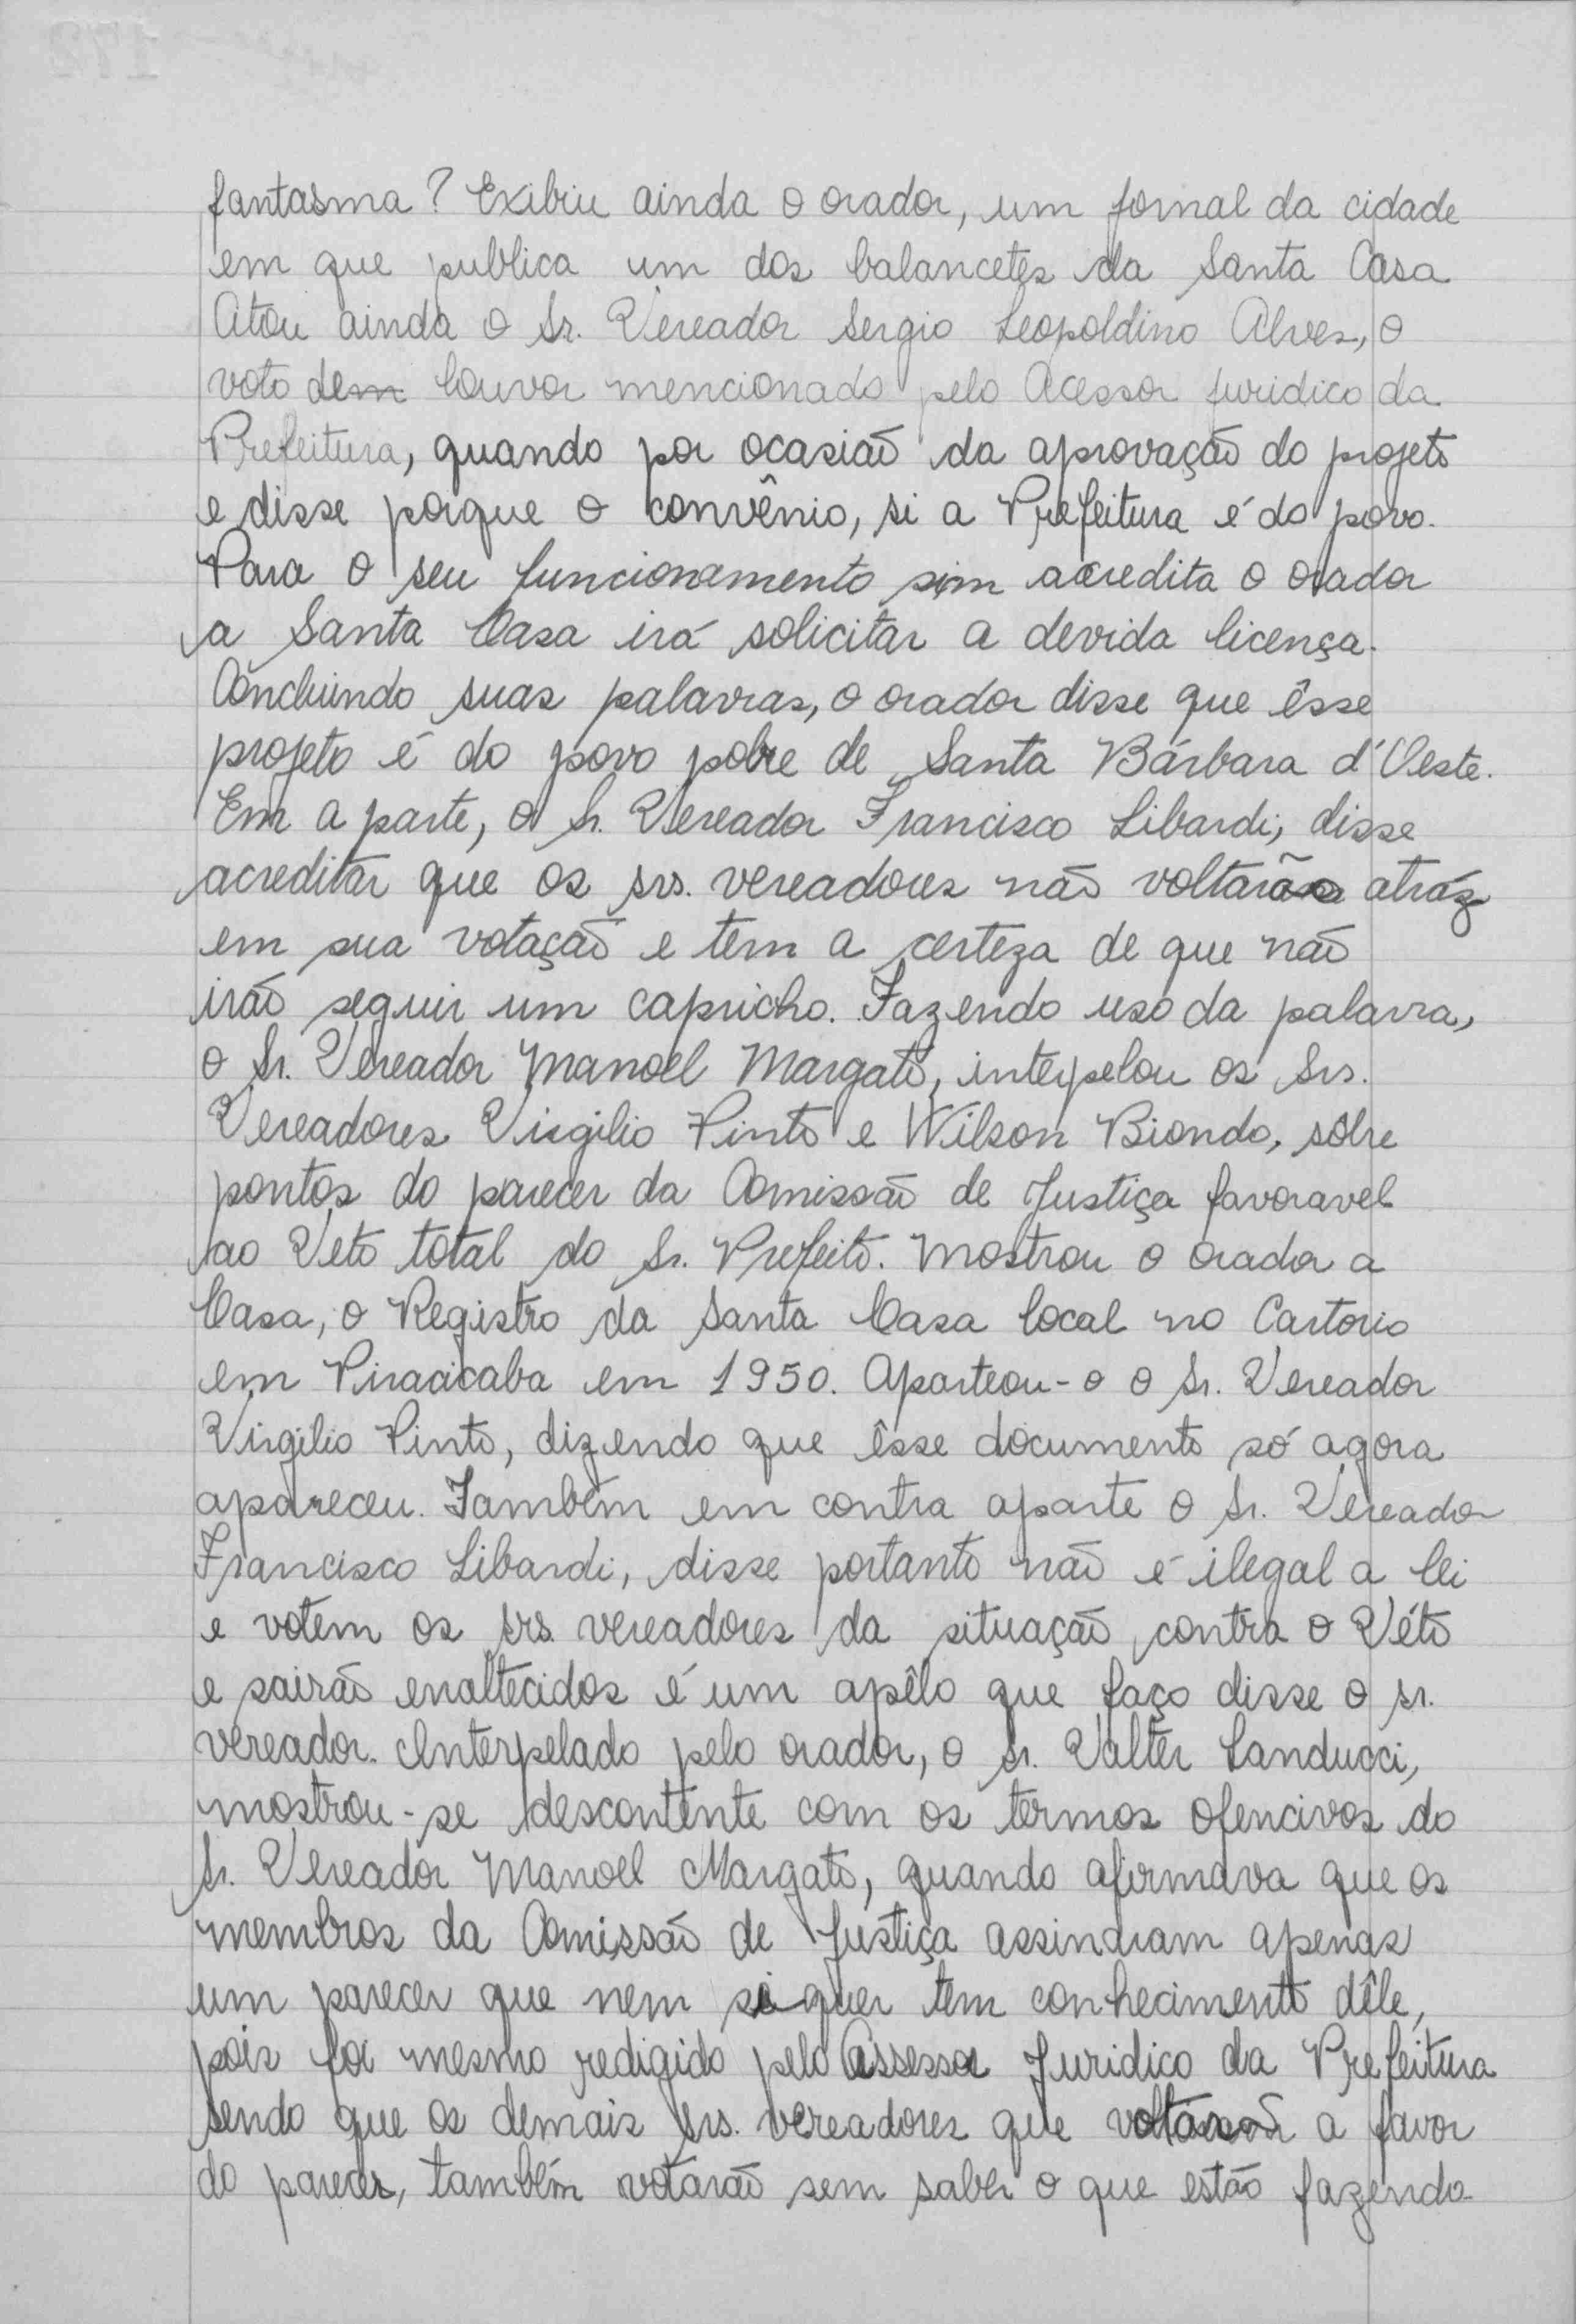 fantasma? Exibiu ainda o orador, um jornal da cidade
em que publica um dos balancetes da Santa Casa
Citou ainda o Sr. Vereador Sergio Leopoldino Alves, o
voto dem louvor mencionado pelo Acessor Juridico da
Prefeitura, quando por ocasião da aprovação do projeto
e disse porque o convênio, si a Prefeitura é do povo.
Para o seu funcionamento sim acredita o orador
a Santa Casa irá solicitar a devida licença.
Concluindo suas palavras, o orador disse que êsse
projeto é do povo pobre de Santa Bárbara d'Oeste.
Em a parte, o Sr. Vereador Francisco Libardi, disse
acreditar que os srs. vereadores não voltarão atráz
em sua votação e tem a certeza de que não
irão seguir um capricho. Fazendo uso da palavra,
o Sr. Vereador Manoel Margato, interpelou os Srs.
Vereadores Virgilio Pinto e Wilson Biondo, sôbre
pontos do parecer da Comissão de Justiça favoravel
ao Veto total do Sr. Prefeito. Mostrou o orador a
Casa, o Registro da Santa Casa local no Cartorio
em Piracicaba em 1950. Aparteou-o o Sr. Vereador
Virgilio Pinto, dizendo que êsse documento só agora
apareceu. Também em contra aparte o Sr. Vereador
Francisco Libardi, disse portanto não é ilegal a lei
e votem os srs. vereadores da situação contra o Véto
e sairão enaltecidos é um apêlo que faço disse o sr.
vereador. Interpelado pelo orador, o Sr. Valter Landucci,
mostrou-se descontente com os termos ofencivos do
Sr. Vereador Manoel Margato, quando afirmava que os
membros da Comissão de Justiça assinaram apenas
um parecer que nem si quer tem conhecimento dêle,
pois foi mesmo redigido pelo Assessor Juridico da Prefeitura
sendo que os demais srs. vereadores que a favor
do parecer, também votarão sem saber o que estão fazendo